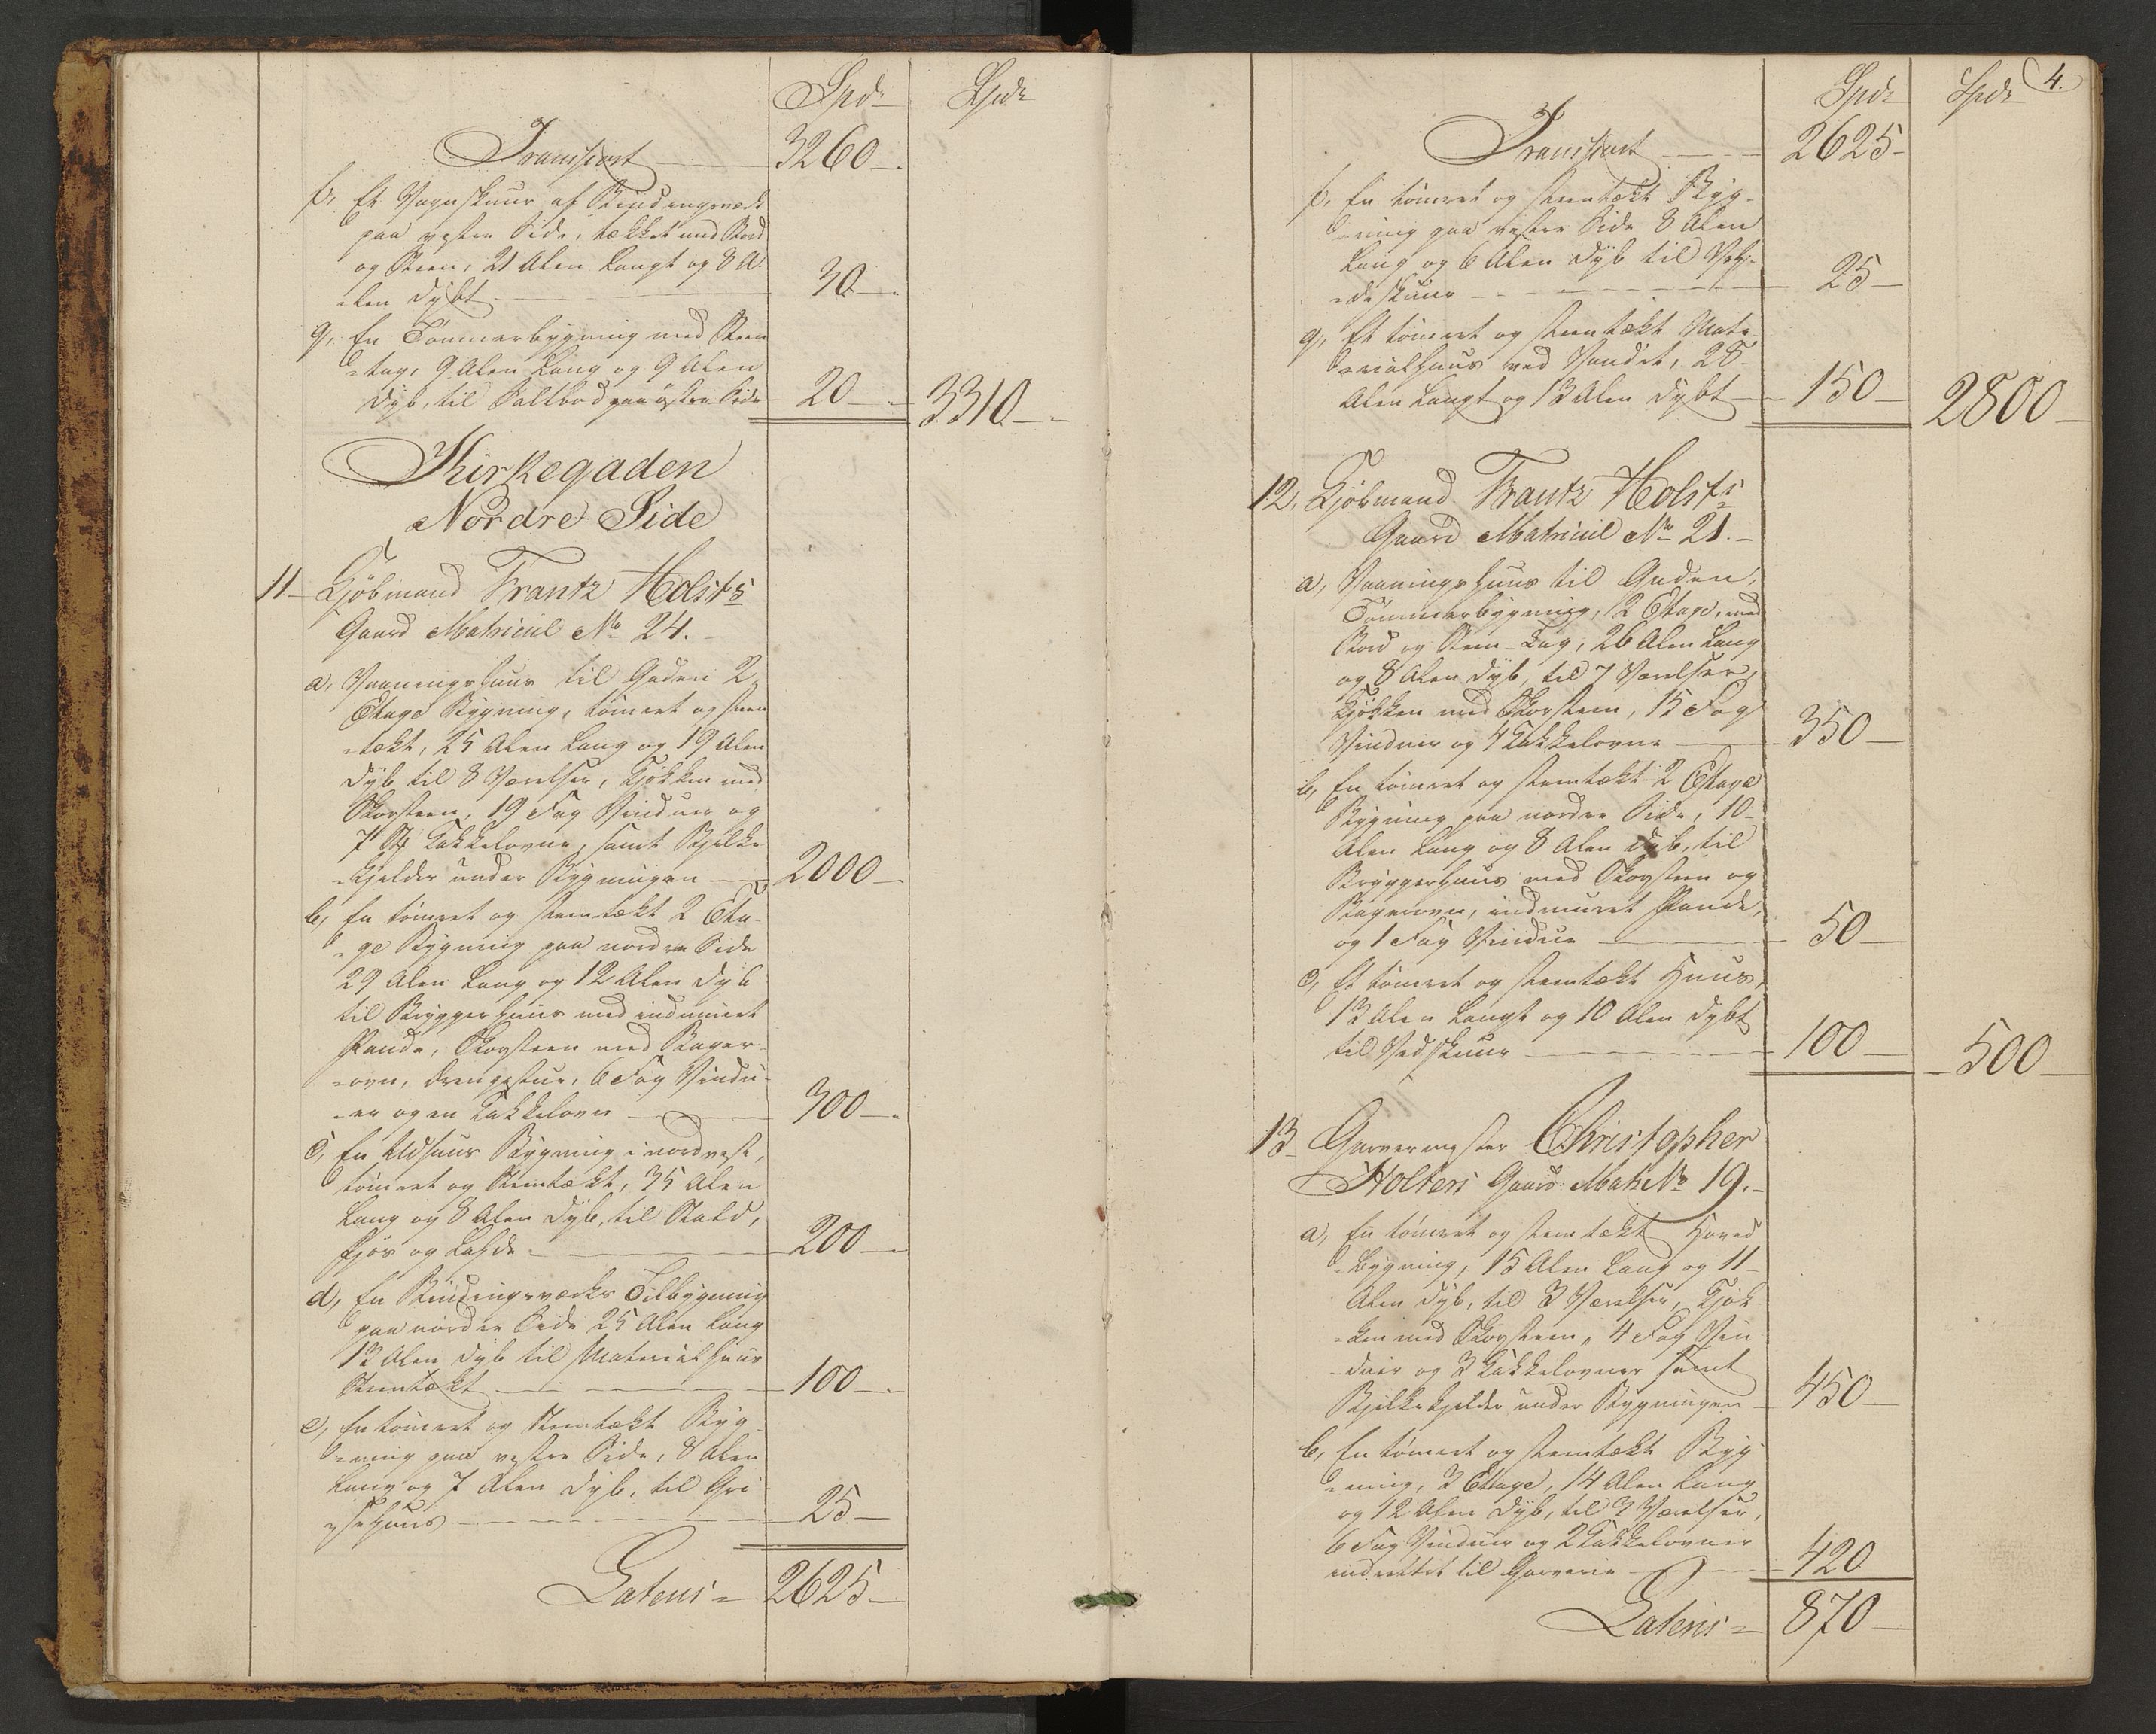 Spd. Spd.
Transport 3260 -
f, Et Vognskuur af Bindingsværk
paa vestre Side, tækket med Bord
og Steen, 21 Alen Langt og 8 A-
-len dybt 30 -
g, En Tømmerbygning med Steen
-tag, 9 Alen Lang og 9 Alen
dyb, til Saltbod paa østre Side 20 - 3310 -
Kirkegaden
Nordre Side
11 Kjöbmand Frantz Holsts
Gaard Matricul No 24.
a, Vaaningshuus til Gaden 2
Etage Bygning, tömret og steen
-tækt, 25 Alen Lang og 19 Alen
dyb til 8 Værelser, Kjökken med
Skorsteen, 19 Fag Vinduer og
7 St Kakkelovne, samt Bjelke
-kjelder under Bygningen 2000 -
b, En tömret og steentækt 2 Eta-
-ge Bygning paa nordre Side
29 Alen Lang og 12 Alen dyb
til Bryggerhuus med indmuret
Pande, Skorsteen med Bager-
-ovn, Drengestue, 6 Fag Vindu-
-er og en Kakkelovn 300 -
c, En Udhuus Bygning i nordvest,
tömret og Steentækt, 35 Alen
Lang og 8 Alen dyb, til Stald,
Fjös og Lahde 200 -
d, En Bindingsværks Tilbygning
paa nordre Side 25 Alen Lang
13 Alen dyb til Materialhuus
Steentækt 100 -
e, En tömret og Steentækt Byg-
-ning paa vestre Side, 8 Alen
Lang og 7 Alen dyb, til Gri
-sehuus 25 -
Lateris = 2625 -
4.
Spd. Spd.
Transport 2625 -
f, En tömret og steentækt Byg-
-ning paa vestre Side 8 Alen
Lang og 6 Alen dyb til
-deskuur 25 -
g, Et tömret og steentækt Mate-
-rialhuus ved Vandet, 28
Alen Langt og 13 Alen dybt 150 - 2800 -
12, Kjöbmand Frantz Holsts
Gaard Matricul No 21. -
a, Vaaningshuus til Gaden,
Tömmerbygning, 2 Etage, med
Bord og Steen-Tag, 26 Alen Lang
og 8 Alen dyb, til 7 Værelser,
Kjökken med Skorsteen, 15 Fag
Vinduer og 4 Kakkelovne 350 -
b, En tömret og steentækt 2 Etage
Bygning paa nordre Side, 10-
Alen Lang og 8 Alen dyb, til
Bryggerhuus med Skorsteen og
Bagerovn, indmuret Pande,
og 1 Fag Vindue 50 -
c, Et tömret og steentækt Huus,
13 Alen Langt og 10 Alen dybt
til Vedskuur 100 - 500 -
13 Garvermester Christopher
Holters Gaard Matr: No 19. -
a, En tömret og steentækt Hoved
-bygning, 15 Alen Lang og 11-
Alen dyb, til 3 Værelser, Kjök-
-ken med Skorsteen, 4 Fag Vin
-duer og 3 Kakkelovner samt
Bjelkekjelder under Bygningen 450 -
b, En tömret og steentækt Byg
-ning, 3 Etage, 14 Alen Lang
og 12 Alen dyb, til 3 Værelser,
6 Fag Vinduer og 2 Kakkelovner
indrettet til Garverie 420
Lateris = 870 -